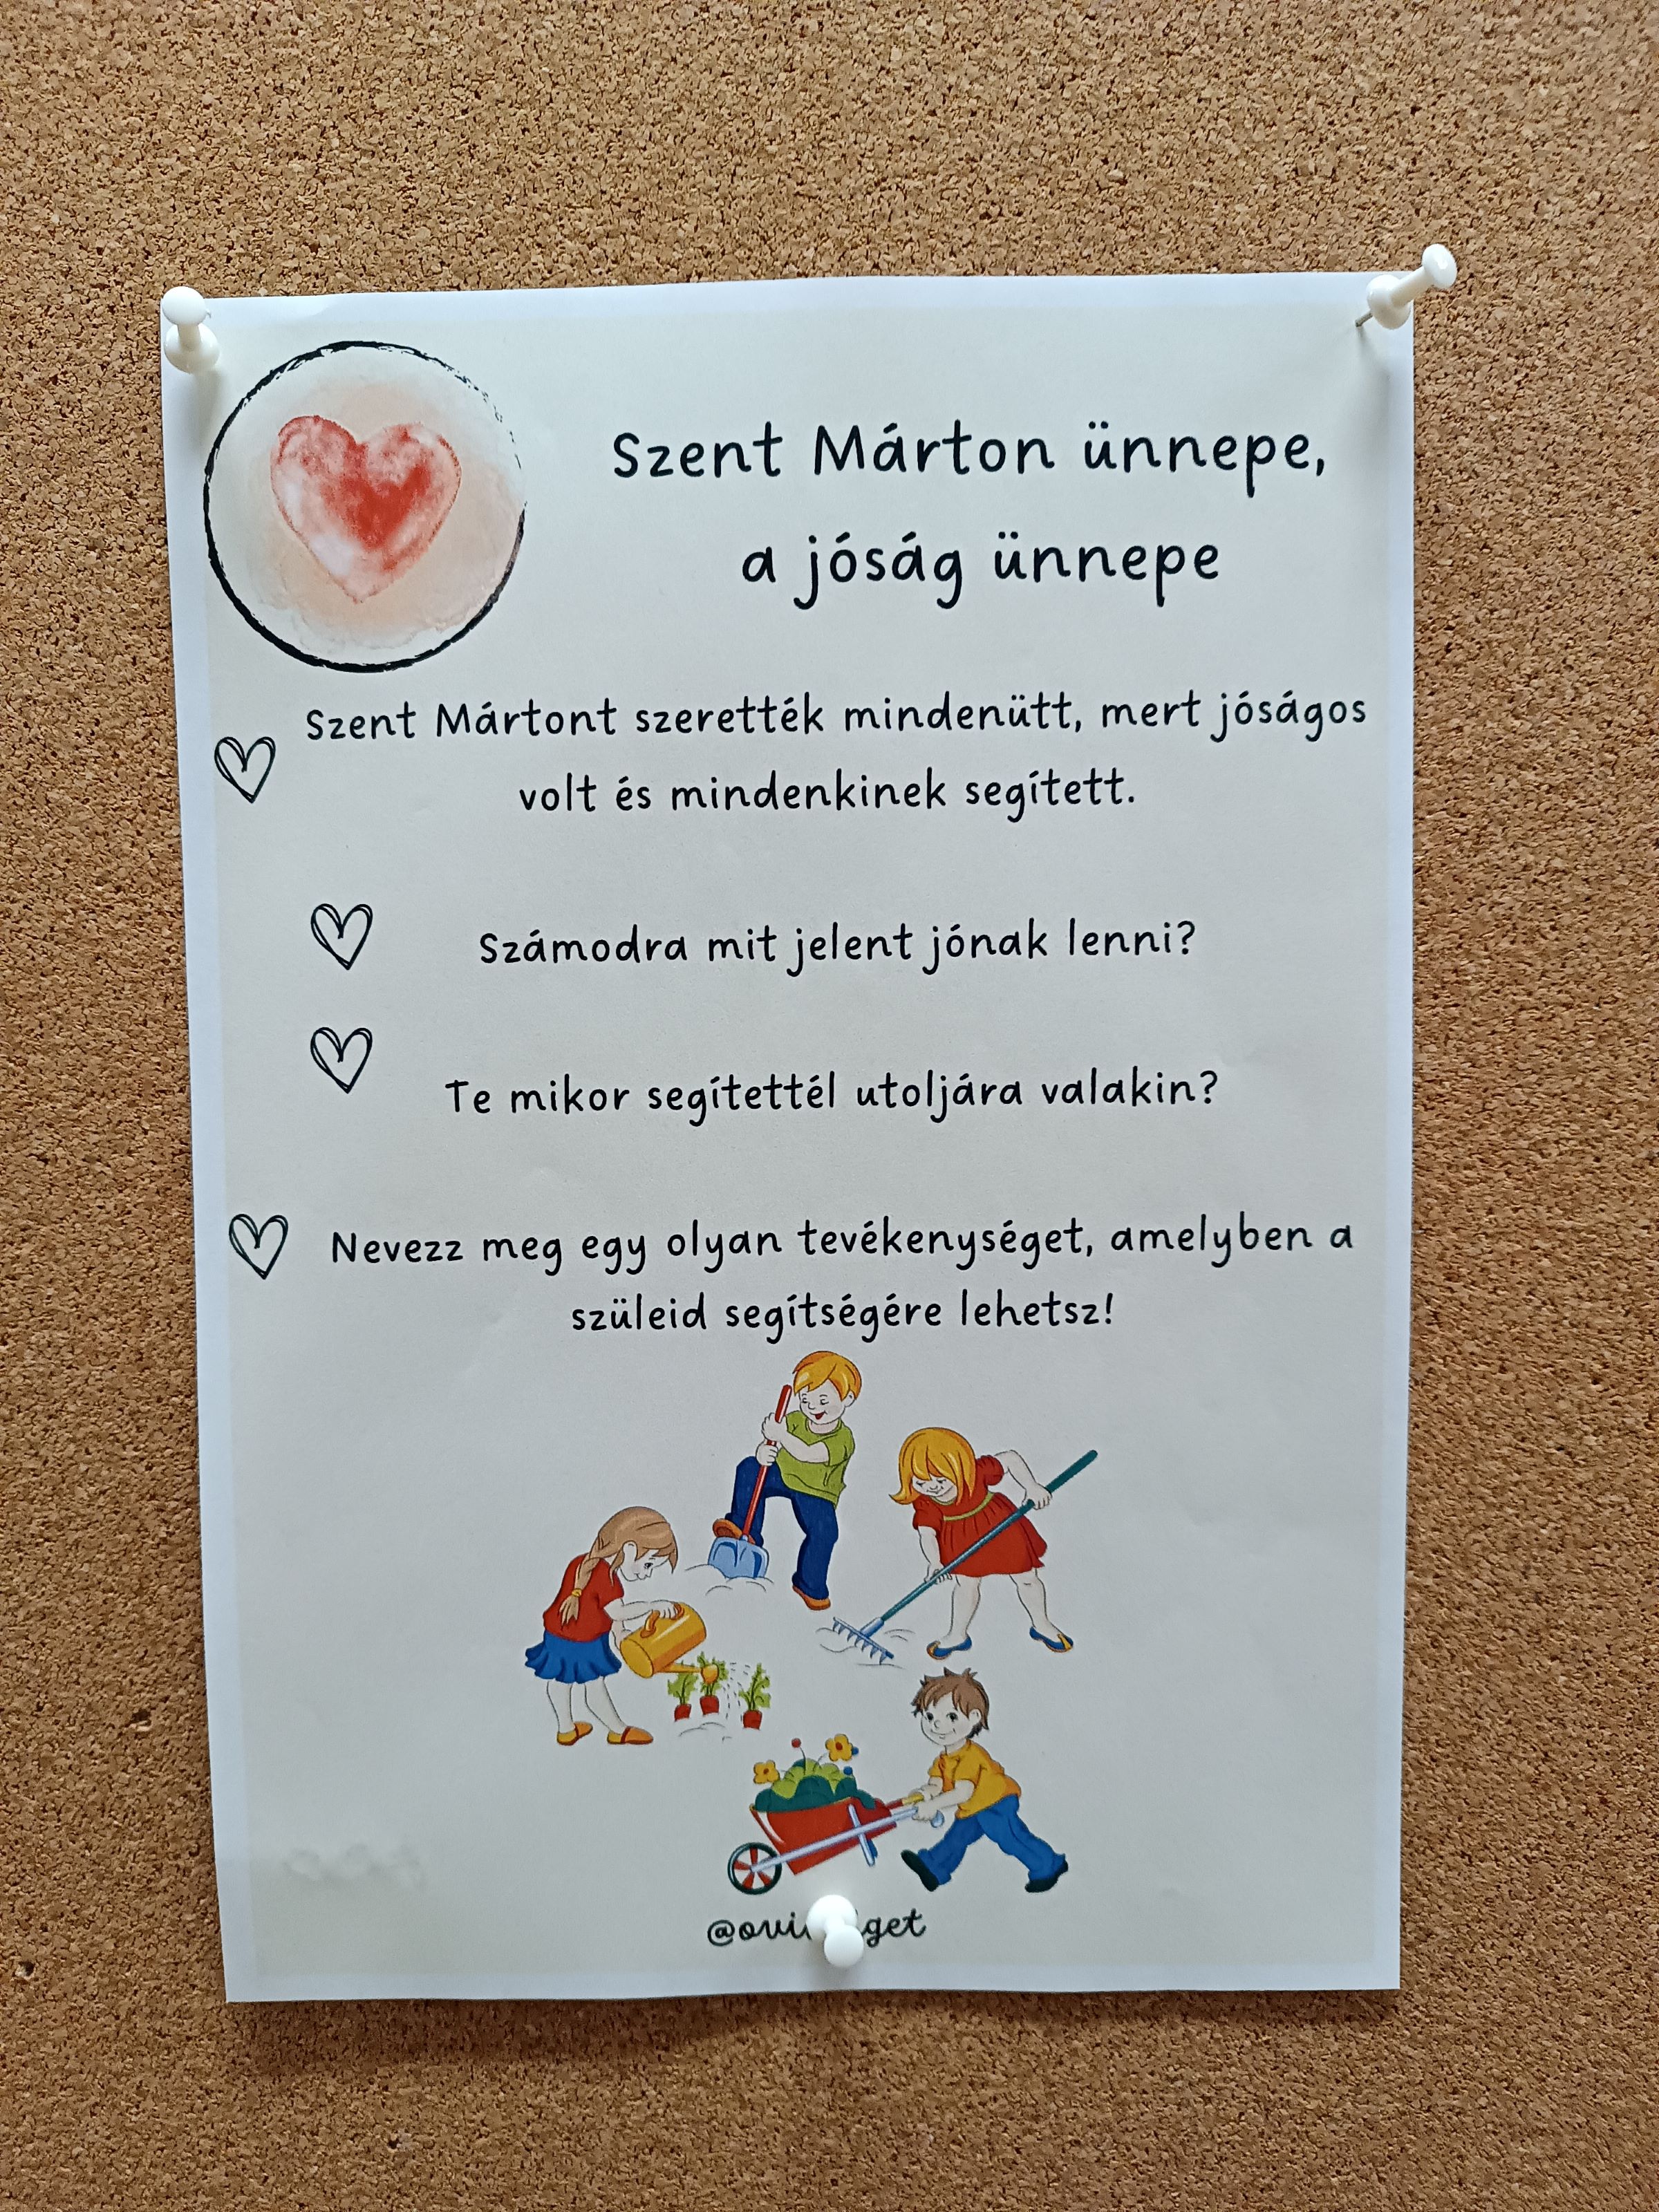 Szent Márton ünnepe,
a jóság ünnepe
Szent Mártont szerették mindenütt, mert jóságos
volt és mindenkinek segített.
Számodra mit jelent jónak lenni?
Te mikor segítettél utoljára valakin?
Nevezz meg egy olyan tevékenységet, amelyben a
szüleid segítségére lehetsz!